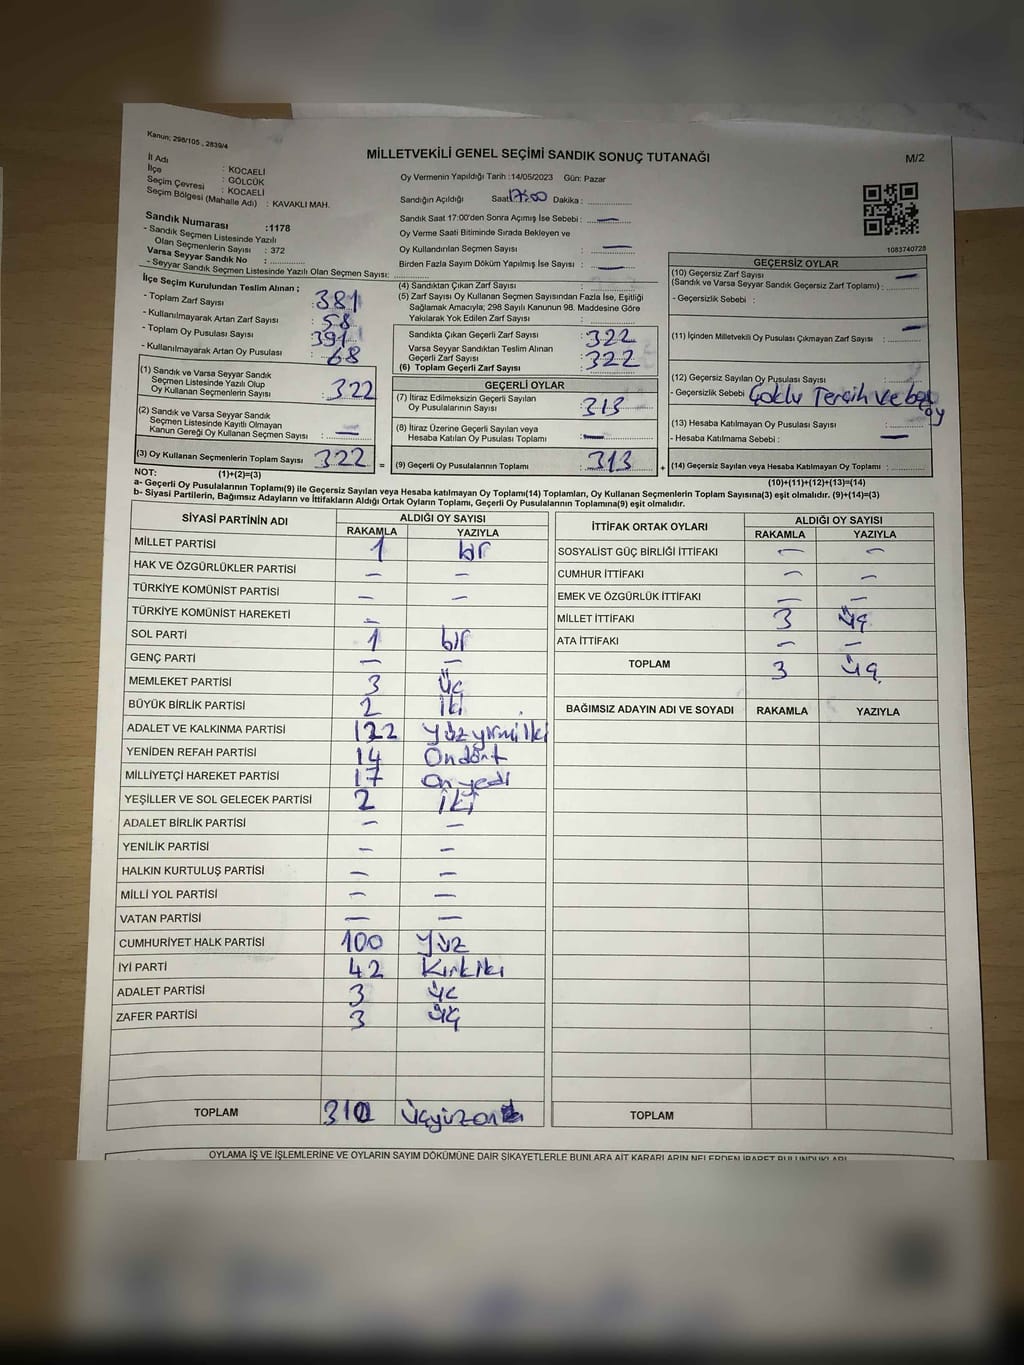 Kanun; 298/105 , 2839/4
MİLLETVEKİLİ GENEL SEÇİMİ SANDIK SONUÇ TUTANAĞI
M/2
İl Adı : KOCAELİ
İlçe : GÖLCÜK
Seçim Çevresi : KOCAELİ
Seçim Bölgesi (Mahalle Adı) : KAVAKLI MAH.
Oy Vermenin Yapıldığı Tarih :14/05/2023 Gün: Pazar
Sandığın Açıldığı Saat 17:00 Dakika :
Sandık Saat 17:00'den Sonra Açımış İse Sebebi : —
Oy Verme Saati Bitiminde Sırada Bekleyen ve
Oy Kullandırılan Seçmen Sayısı : —
Birden Fazla Sayım Döküm Yapılmış İse Sayısı : —
1083740728
Sandık Numarası :1178
- Sandık Seçmen Listesinde Yazılı
Olan Seçmenlerin Sayısı : 372
Varsa Seyyar Sandık No :
- Seyyar Sandık Seçmen Listesinde Yazılı Olan Seçmen Sayısı:
İlçe Seçim Kurulundan Teslim Alınan ;
- Toplam Zarf Sayısı : 381
- Kullanılmayarak Artan Zarf Sayısı : 58
- Toplam Oy Pusulası Sayısı : 391
- Kullanılmayarak Artan Oy Pusulası : 68
(1) Sandık ve Varsa Seyyar Sandık
Seçmen Listesinde Yazılı Olup
Oy Kullanan Seçmenlerin Sayısı : 322
(2) Sandık ve Varsa Seyyar Sandık
Seçmen Listesinde Kayıtlı Olmayan
Kanun Gereği Oy Kullanan Seçmen Sayısı : —
(3) Oy Kullanan Seçmenlerin Toplam Sayısı : 322 =
(4) Sandıktan Çıkan Zarf Sayısı :
(5) Zarf Sayısı Oy Kullanan Seçmen Sayısından Fazla İse, Eşitliği
Sağlamak Amacıyla; 298 Sayılı Kanunun 98. Maddesine Göre
Yakılarak Yok Edilen Zarf Sayısı :
Sandıkta Çıkan Geçerli Zarf Sayısı : 322
Varsa Seyyar Sandıktan Teslim Alınan
Geçerli Zarf Sayısı : 322
(6) Toplam Geçerli Zarf Sayısı :
GEÇERLİ OYLAR
(7) İtiraz Edilmeksizin Geçerli Sayılan
Oy Pusulalarının Sayısı : 313
(8) İtiraz Üzerine Geçerli Sayılan veya
Hesaba Katılan Oy Pusulası Toplamı : —
(9) Geçerli Oy Pusulalarının Toplamı : 313 +
GEÇERSİZ OYLAR
(10) Geçersiz Zarf Sayısı —
(Sandık ve Varsa Seyyar Sandık Geçersiz Zarf Toplamı) :
- Geçersizlik Sebebi :
(11) İçinden Milletvekili Oy Pusulası Çıkmayan Zarf Sayısı : —
(12) Geçersiz Sayılan Oy Pusulası Sayısı :
- Geçersizlik Sebebi Çoklu Tercih ve boş oy
(13) Hesaba Katılmayan Oy Pusulası Sayısı :
- Hesaba Katılmama Sebebi : —
(14) Geçersiz Sayılan veya Hesaba Katılmayan Oy Toplamı :
NOT: (1)+(2)=(3)
(10)+(11)+(12)+(13)=(14)
a- Geçerli Oy Pusulalarının Toplamı(9) ile Geçersiz Sayılan veya Hesaba katılmayan Oy Toplamı(14) Toplamları, Oy Kullanan Seçmenlerin Toplam Sayısına(3) eşit olmalıdır. (9)+(14)=(3)
b- Siyasi Partilerin, Bağımsız Adayların ve İttifakların Aldığı Ortak Oyların Toplamı, Geçerli Oy Pusulalarının Toplamına(9) eşit olmalıdır.
SİYASİ PARTİNİN ADI ALDIĞI OY SAYISI
RAKAMLA YAZIYLA
MİLLET PARTİSİ 1 bir
HAK VE ÖZGÜRLÜKLER PARTİSİ — —
TÜRKİYE KOMÜNİST PARTİSİ — —
TÜRKİYE KOMÜNİST HAREKETİ —
SOL PARTİ 1 bir
GENÇ PARTİ — —
MEMLEKET PARTİSİ 3 üç
BÜYÜK BİRLİK PARTİSİ 2 iki
ADALET VE KALKINMA PARTİSİ 122 yüzyirmiiki
YENİDEN REFAH PARTİSİ 14 Ondört
MİLLİYETÇİ HAREKET PARTİSİ 17 Onyedi
YEŞİLLER VE SOL GELECEK PARTİSİ 2 iki
ADALET BİRLİK PARTİSİ — —
YENİLİK PARTİSİ — —
HALKIN KURTULUŞ PARTİSİ — —
MİLLİ YOL PARTİSİ — —
VATAN PARTİSİ — —
CUMHURİYET HALK PARTİSİ 100 yüz
İYİ PARTİ 42 Kırkiki
ADALET PARTİSİ 3 üc
ZAFER PARTİSİ 3 üç
TOPLAM 310 üçyüzon
İTTİFAK ORTAK OYLARI ALDIĞI OY SAYISI
RAKAMLA YAZIYLA
SOSYALİST GÜÇ BİRLİĞİ İTTİFAKI — —
CUMHUR İTTİFAKI — —
EMEK VE ÖZGÜRLÜK İTTİFAKI — —
MİLLET İTTİFAKI 3 üç
ATA İTTİFAKI — —
TOPLAM 3 üç
BAĞIMSIZ ADAYIN ADI VE SOYADI RAKAMLA YAZIYLA
TOPLAM
OYLAMA İŞ VE İŞLEMLERİNE VE OYLARIN SAYIM DÖKÜMÜNE DAİR ŞİKAYETLERLE BUNLARA AİT KARARLARIN NELERDEN İBARET BULUNDUKLARI